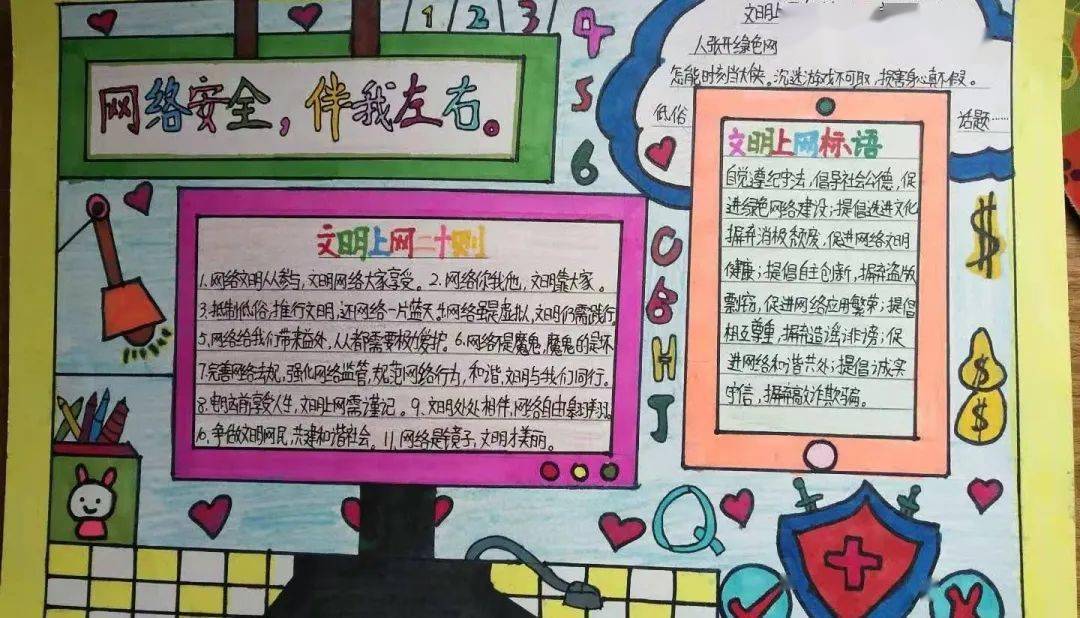 网络安全，伴我左右。
1 2 3
4
5
6
C
8
H
J
Q
文明上
人张开绿色网
怎能时刻当大侠。沉迷游戏不可取，损害身心真不假。
低俗
话题……
文明上网标语
自觉遵纪守法，倡导社会公德，促
进绿色网络建设；提倡先进文化
摒弃消极颓废，促进网络文明
健康；提倡自主创新，摒弃盗版
剽窃，促进网络应用繁荣；提倡
相互尊重，摒弃造谣诽谤，促
进网络和谐共处；提倡诚实
守信，摒弃欺诈欺骗。
$
$
$
文明上网二十则
1.网络文明人人参与，文明网络大家享受。2.网络你我他，文明靠大家。
3.抵制低俗，推行文明，还网络一片蓝天。4.网络虽是虚拟，文明仍需践行
5.网络给我们带来益处，人人都需要极力爱护。6.网络不是魔鬼，魔鬼的是坏
7.完善网络法规，强化网络监管，规范网络行为，和谐，文明与我们同行。
8.电脑前享受人生，文明上网需谨记。9.文明处处相伴，网络自由
10.争做文明网民，共建和谐社会。11.网络是一面镜子，文明才美丽。